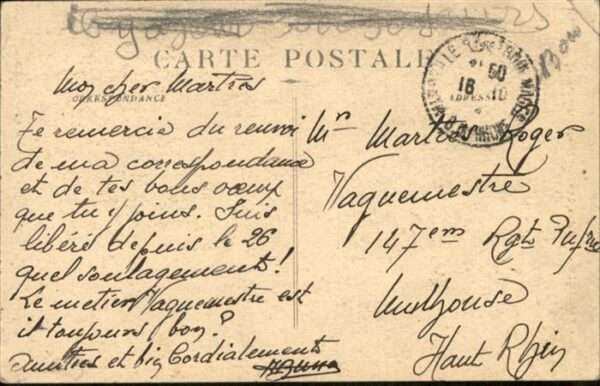 CARTE POSTALE
CORRESPONDANCE
ADRESSE
Mon cher Martres
Je remercie du renvoi
de ma correspondance
et de tes bons voeux
que tu y joins. Suis
libéré depuis le 26
quel soulagement!
Le metier Vaguemestre est
il toujours bon?
amitiés et bien Cordialement
Mr Martres Roger
Vaguemestre
147em Rgt Infrie
Mulhouse
Haut Rhin
16 10